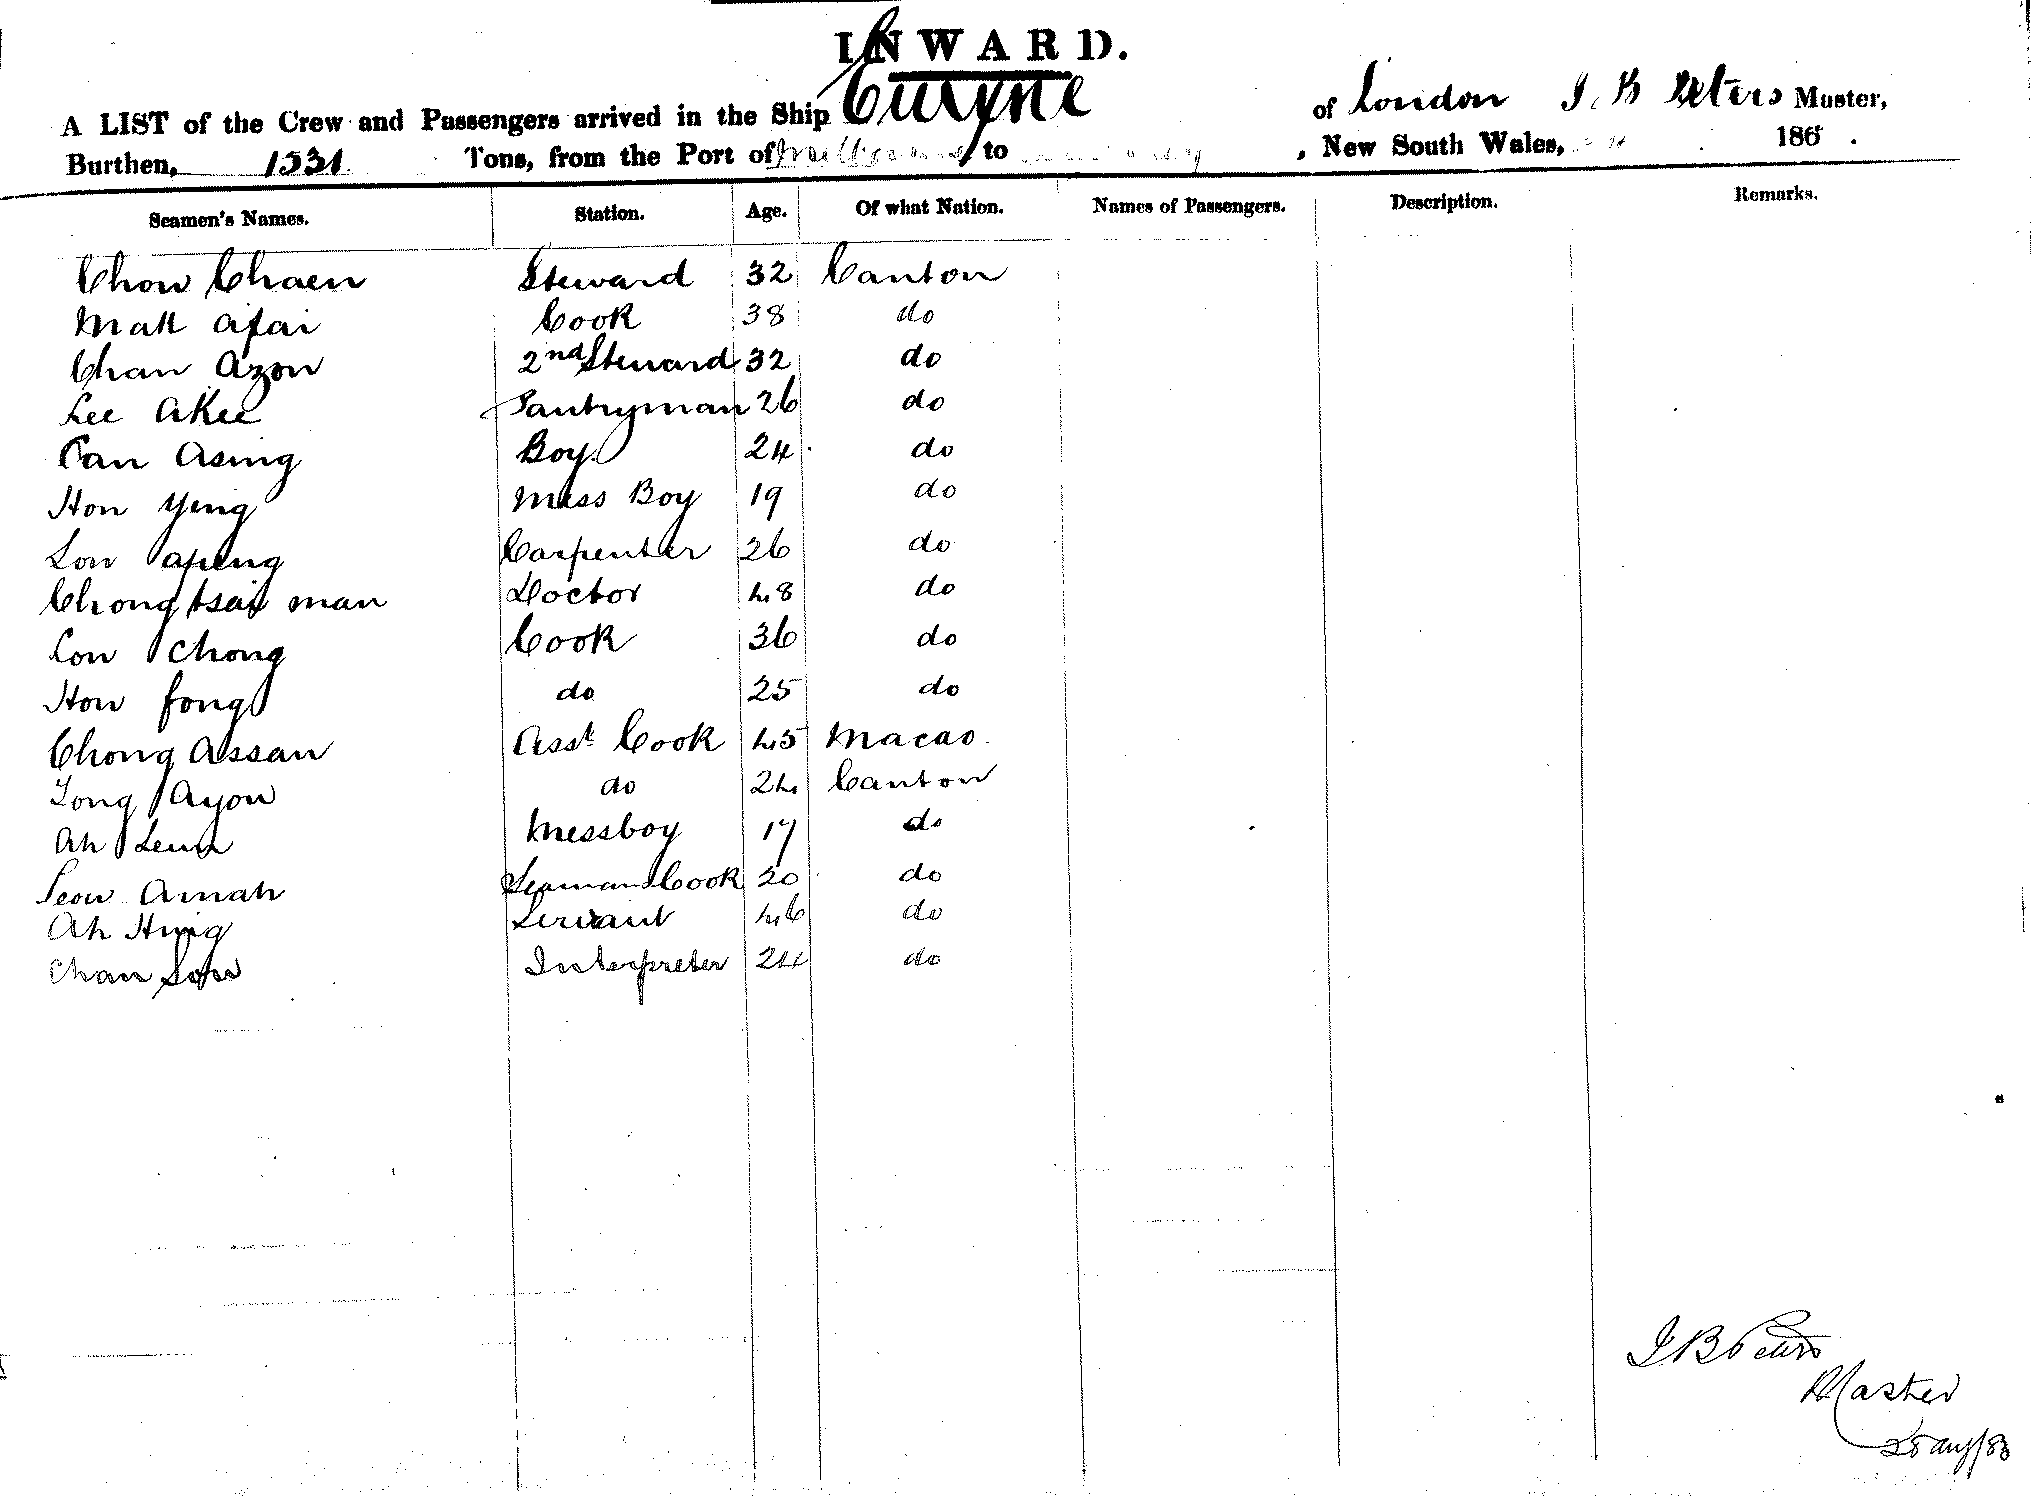 INWARD.
A LIST of the Crew and Passengers arrived in the Ship of London J. B Peters Master,
Burthen, 1331 Tons, from the Port of Melbourne to , New South Wales, 186 .
Seamen's Names. Station. Age. Of what Nation. Names of Passengers. Description. Remarks.
Chow Chaen Steward 32 Canton
Mak Afai Cook 38 do
Chan Azon 2nd Steward 32 do
Lee Akee Pantryman 26 do
Pan Asing Boy 24 do
Hon Ying Mess Boy 19 do
Lon Aping Carpenter 26 do
Chong tsai man Doctor 48 do
Lon Chong Cook 36 do
Hon fong do 25 do
Chong Assan Asst Cook 45 Macao
Tong Ayon do 24 Canton
Ah Leun Messboy 17 do
Seow Amah Seamans Cook 20 do
Ah Hing Servant 46 do
Chan Son Interpreter 24 do
J B Peters
Master
28 Aug/83